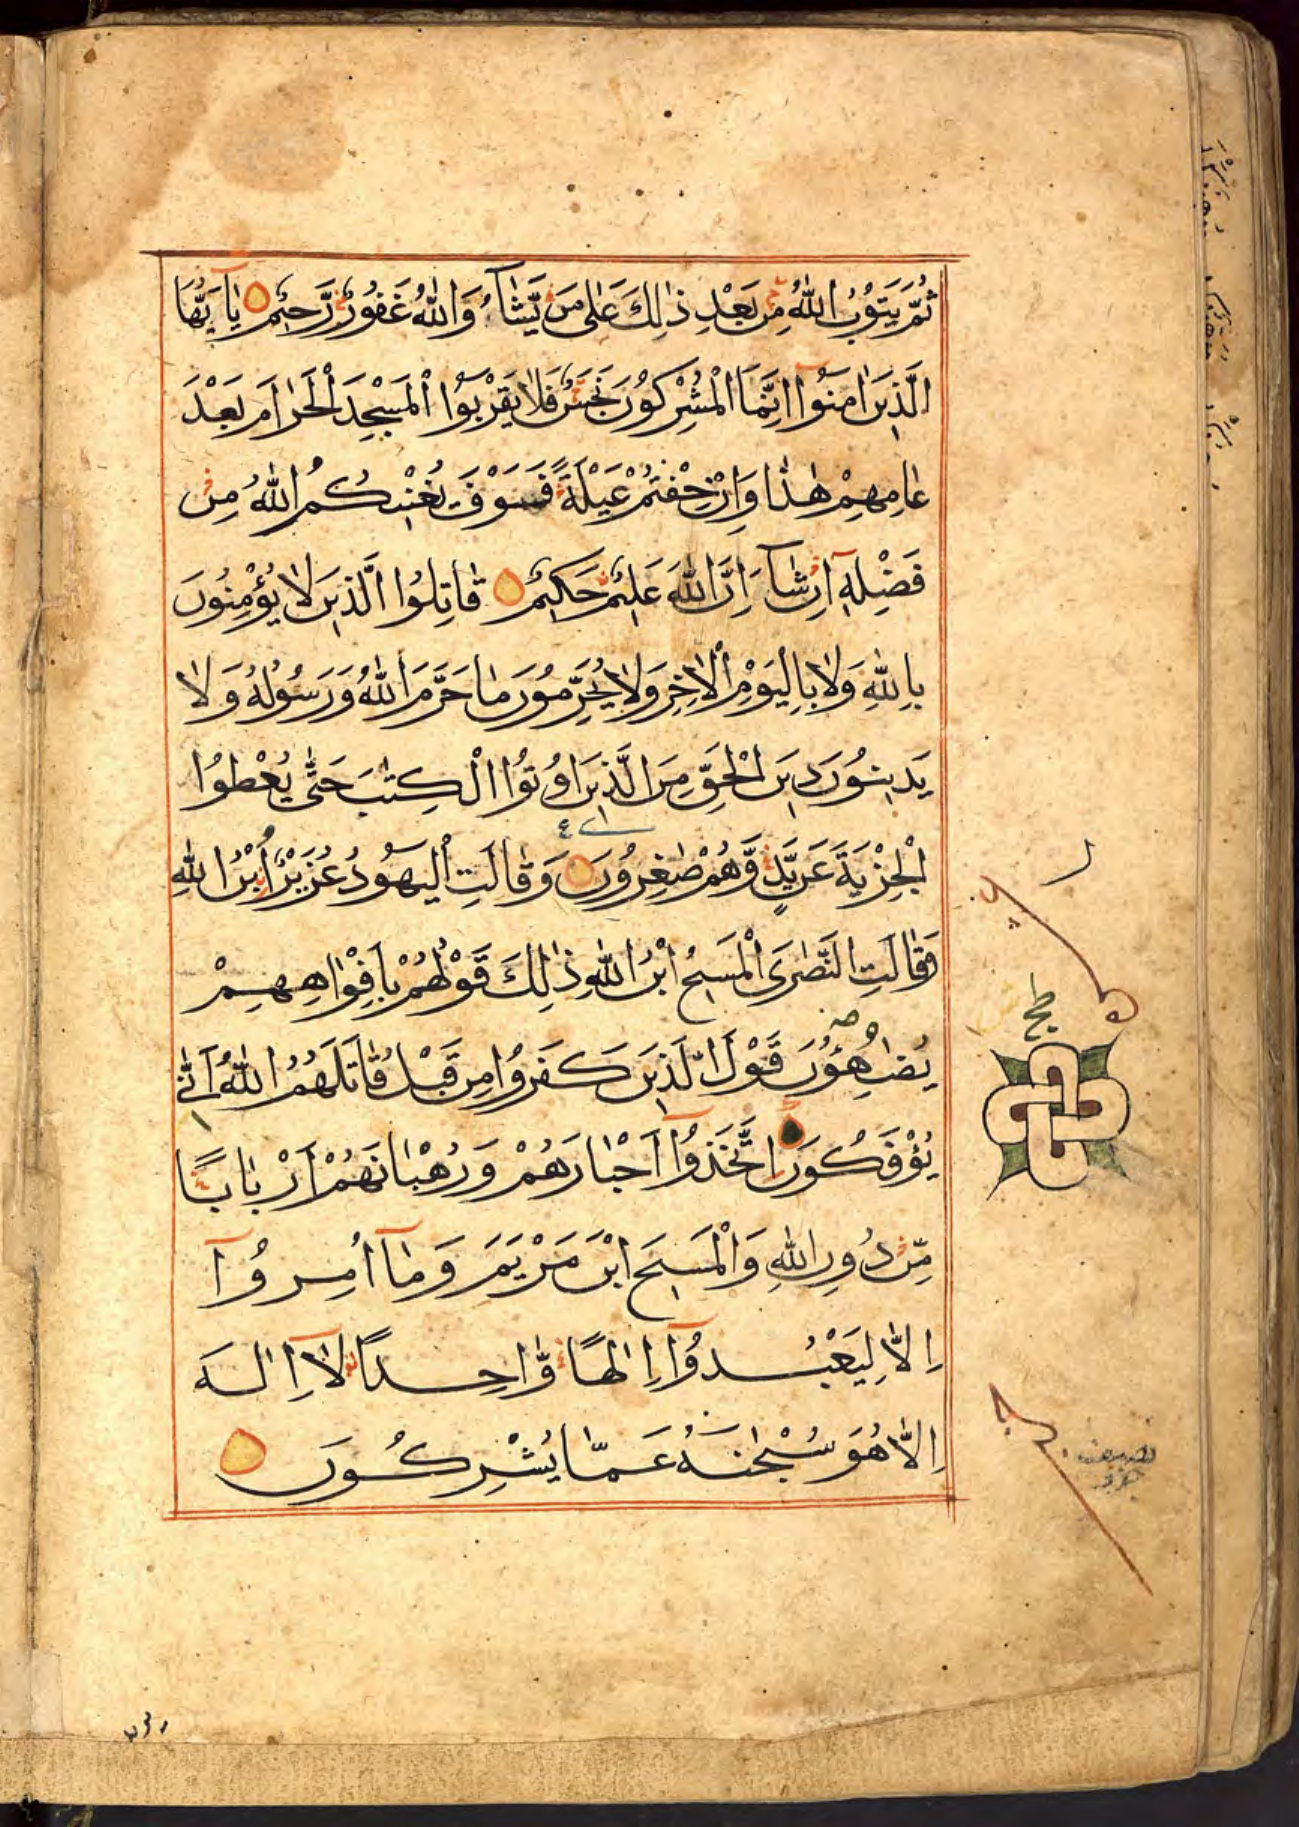 ثُمَّ يَتُوْبُ اللّٰهُ مِنْ بَعْدِ ذٰلِكَ عَلٰى مَنْ يَّشَآءُ وَاللّٰهُ غَفُوْرٌ رَّحِيْمٌ يٰاَيُّهَا
الَّذِيْنَ اٰمَنُوْا اِنَّمَا الْمُشْرِكُوْنَ نَجَسٌ فَلَا يَقْرَبُوا الْمَسْجِدَ الْحَرَامَ بَعْدَ
عَامِهِمْ هٰذَا وَاِنْ خِفْتُمْ عَيْلَةً فَسَوْفَ يُغْنِيْكُمُ اللّٰهُ مِنْ
فَضْلِهٖ اِنْ شَآءَ اِنَّ اللّٰهَ عَلِيْمٌ حَكِيْمٌ قَاتِلُوا الَّذِيْنَ لَا يُؤْمِنُوْنَ
بِاللّٰهِ وَلَا بِالْيَوْمِ الْاٰخِرِ وَلَا يُحَرِّمُوْنَ مَا حَرَّمَ اللّٰهُ وَرَسُوْلُهٗ وَلَا
يَدِيْنُوْنَ دِيْنَ الْحَقِّ مِنَ الَّذِيْنَ اُوْتُوا الْكِتٰبَ حَتّٰى يُعْطُوا
ع
الْجِزْيَةَ عَنْ يَّدٍ وَّهُمْ صٰغِرُوْنَ وَقَالَتِ الْيَهُوْدُ عُزَيْرُ ابْنُ اللّٰهِ
وَقَالَتِ النَّصٰرَى الْمَسِيْحُ ابْنُ اللّٰهِ ذٰلِكَ قَوْلُهُمْ بِاَفْوَاهِهِمْ
يُضَاهِؤُنَ قَوْلَ الَّذِيْنَ كَفَرُوْا مِنْ قَبْلُ قَاتَلَهُمُ اللّٰهُ اَنّٰى
يُؤْفَكُوْنَ اِتَّخَذُوْٓا اَحْبَارَهُمْ وَرُهْبَانَهُمْ اَرْبَابًا
مِّنْ دُوْنِ اللّٰهِ وَالْمَسِيْحَ ابْنَ مَرْيَمَ وَمَآ اُمِرُوْٓا
اِلَّا لِيَعْبُدُوْٓا اِلٰهًا وَّاحِدًا لَآ اِلٰهَ
اِلَّا هُوَ سُبْحٰنَهٗ عَمَّا يُشْرِكُوْنَ